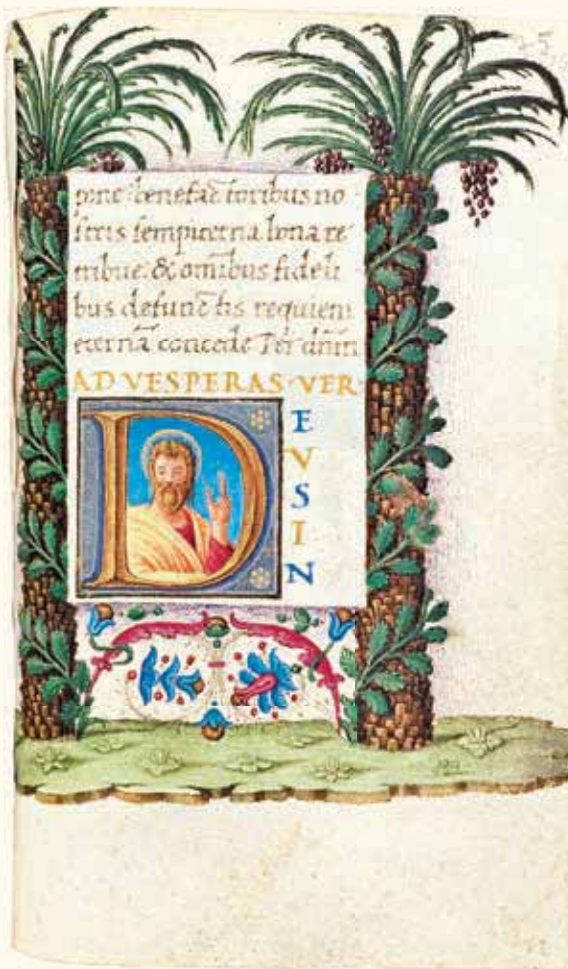 pone benefactoribus no
stris sempiterna bona re
tribue. & omībus fideli
bus defunctis requiem
eternā concede Per dn̄m
AD VESPERAS·VER
D
E
V
S
I
N